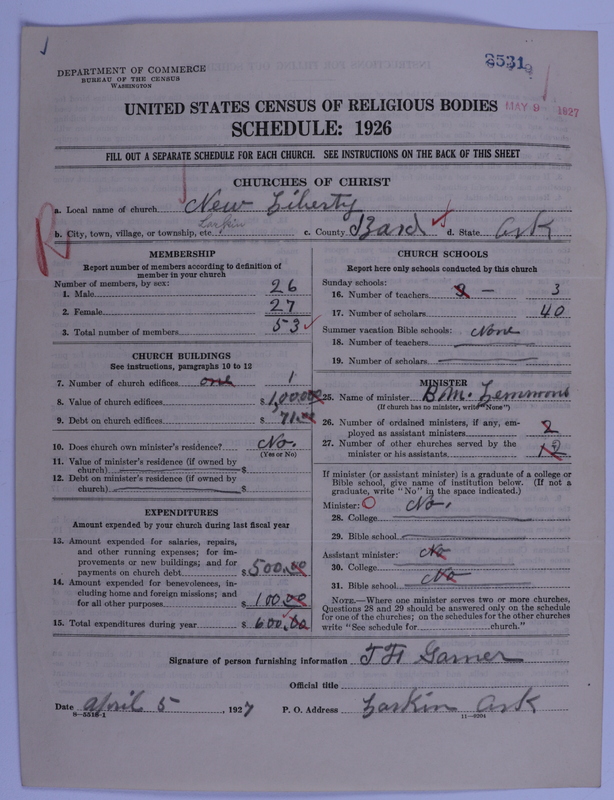 8531
DEPARTMENT OF COMMERCE
BUREAU OF THE CENSUS
WASHINGTON
MAY 9 1927
UNITED STATES CENSUS OF RELIGIOUS BODIES
SCHEDULE: 1926
FILL OUT A SEPARATE SCHEDULE FOR EACH CHURCH. SEE INSTRUCTIONS ON THE BACK OF THIS SHEET
CHURCHES OF CHRIST
a. Local name of church New Liberty
Larkin
b. City, town, village, or township, etc. c. County Izard d. State Ark
MEMBERSHIP
Report number of members according to definition of
member in your church
Number of members, by sex:
1. Male 26
2. Female 27
3. Total number of members 53
CHURCH BUILDINGS
See instructions, paragraphs 10 to 12
7. Number of church edifices one 1
8. Value of church edifices $ 1,000.00
9. Debt on church edifices $ 71.00
10. Does church own minister's residence? No.
(Yes or No)
11. Value of minister's residence (if owned by
church) $
12. Debt on minister's residence (if owned by
church) $
EXPENDITURES
Amount expended by your church during last fiscal year
13. Amount expended for salaries, repairs,
and other running expenses; for im-
provements or new buildings; and for
payments on church debt $ 500.00
14. Amount expended for benevolences, in-
cluding home and foreign missions; and
for all other purposes $ 100.00
15. Total expenditures during year $ 600.00
CHURCH SCHOOLS
Report here only schools conducted by this church
Sunday schools:
16. Number of teachers 3 — 3
17. Number of scholars 40
Summer vacation Bible schools: None
18. Number of teachers
19. Number of scholars
MINISTER
25. Name of minister B.M. Lemmons
(If church has no minister, write "None")
26. Number of ordained ministers, if any, em-
ployed as assistant ministers 2
27. Number of other churches served by the
minister or his assistants 2
If minister (or assistant minister) is a graduate of a college or
Bible school, give name of institution below. (If not a
graduate, write "No" in the space indicated.)
Minister: No.
28. College
29. Bible school
Assistant minister: No
30. College
No
31. Bible school
NOTE.—Where one minister serves two or more churches,
Questions 28 and 29 should be answered only on the schedule
for one of the churches; on the schedules for the other churches
write "See schedule for church."
Signature of person furnishing information T H Garner
Official title
Date April 5, 1927 P. O. Address Larkin Ark
8—5518-1 11—9204